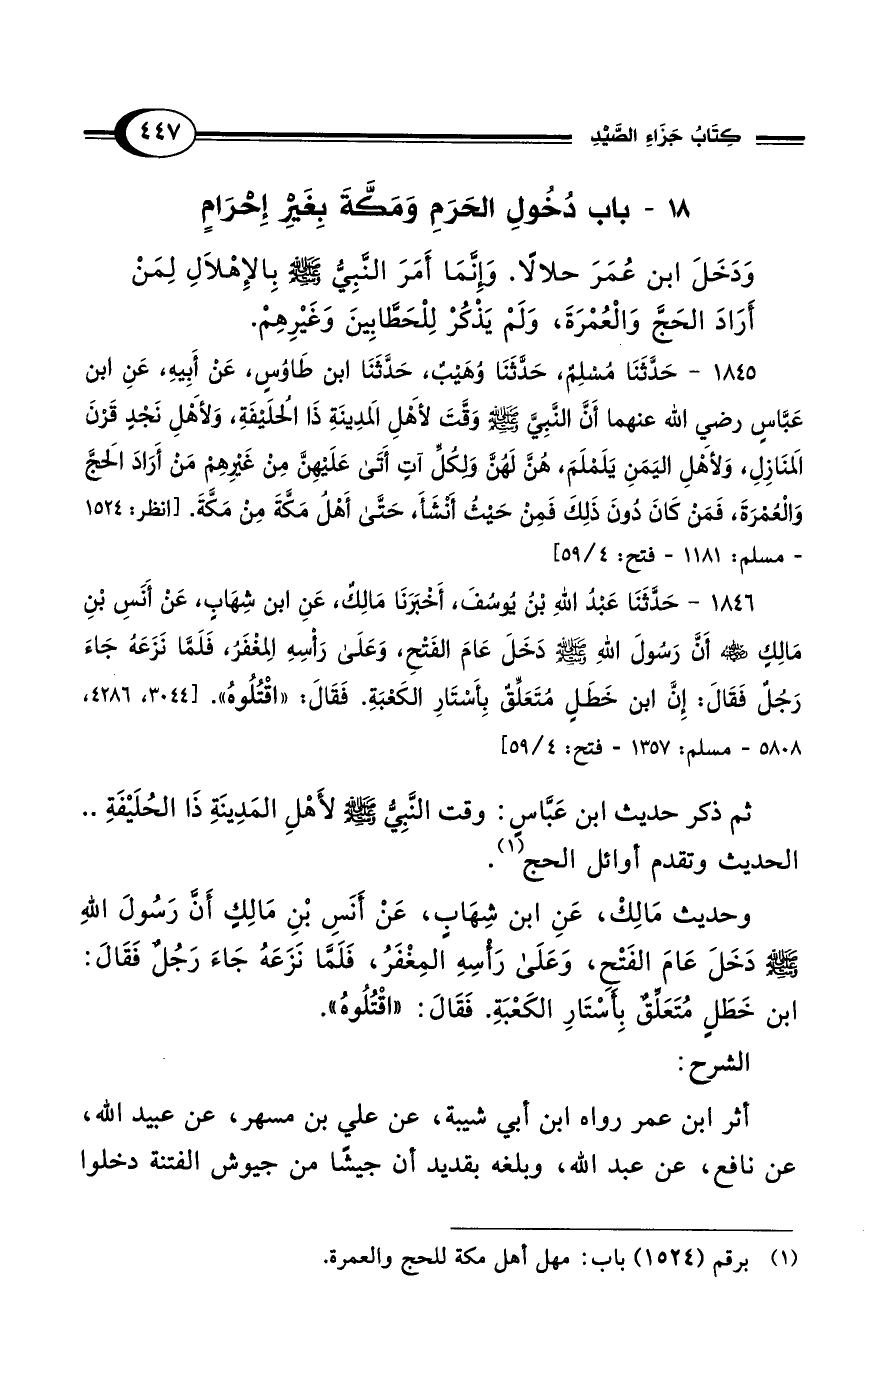 كِتَابُ جَزَاءِ الصَّيْدِ ٤٤٧
١٨ - باب دُخُولِ الحَرَمِ وَمَكَّةَ بِغَيْرِ إِحْرَامٍ
وَدَخَلَ ابن عُمَرَ حلالًا. وَإِنَّمَا أَمَرَ النَّبِيُّ ﷺ بِالإِهْلَالِ لِمَنْ
أَرَادَ الحَجَّ وَالْعُمْرَةَ، وَلَمْ يَذْكُرْ لِلْحَطَّابِينَ وَغَيْرِهِمْ.
١٨٤٥ - حَدَّثَنَا مُسْلِمٌ، حَدَّثَنَا وُهَيْبٌ، حَدَّثَنَا ابن طَاوُسٍ، عَنْ أَبِيهِ، عَنِ ابن
عَبَّاسٍ رضي الله عنهما أَنَّ النَّبِيَّ ﷺ وَقَّتَ لأَهْلِ المَدِينَةِ ذَا الُحلَيْفَةِ، وَلأَهْلِ نَجْدٍ قَرْنَ
المَنَازِلِ، وَلأَهْلِ اليَمَنِ يَلَمْلَمَ، هُنَّ لَهُنَّ وَلِكُلِّ آتٍ أَتَى عَلَيْهِنَّ مِنْ غَيْرِهِمْ مَنْ أَرَادَ الَحجَّ
وَالْعُمْرَةَ، فَمَنْ كَانَ دُونَ ذَلِكَ فَمِنْ حَيْثُ أَنْشَأَ، حَتَّى أَهْلُ مَكَّةَ مِنْ مَكَّةَ. [انظر: ١٥٢٤
- مسلم: ١١٨١ - فتح: ٤/ ٥٩]
١٨٤٦ - حَدَّثَنَا عَبْدُ اللهِ بْنُ يُوسُفَ، أَخْبَرَنَا مَالِكٌ، عَنِ ابن شِهَابٍ، عَنْ أَنَسِ بْنِ
مَالِكٍ ﵁ أَنَّ رَسُولَ اللهِ ﷺ دَخَلَ عَامَ الفَتْحِ، وَعَلَى رَأْسِهِ المِغْفَرُ، فَلَمَّا نَزَعَهُ جَاءَ
رَجُلٌ فَقَالَ: إِنَّ ابن خَطَلٍ مُتَعَلِّقٌ بِأَسْتَارِ الكَعْبَةِ. فَقَالَ: «اقْتُلُوهُ». [٣٠٤٤، ٤٢٨٦،
٥٨٠٨ - مسلم: ١٣٥٧ - فتح: ٤/ ٥٩]
ثم ذكر حديث ابن عَبَّاسٍ: وقت النَّبِيُّ ﷺ لأَهْلِ المَدِينَةِ ذَا الحُلَيْفَةِ ..
الحديث وتقدم أوائل الحج(١).
وحديث مَالِكْ، عَنِ ابن شِهَابٍ، عَنْ أَنَسِ بْنِ مَالِكٍ أَنَّ رَسُولَ اللهِ
ﷺ دَخَلَ عَامَ الفَتْحِ، وَعَلَى رَأْسِهِ المِغْفَرُ، فَلَمَّا نَزَعَهُ جَاءَ رَجُلٌ فَقَالَ:
ابن خَطَلٍ مُتَعَلِّقٌ بِأَسْتَارِ الكَعْبَةِ. فَقَالَ: «اقْتُلُوهُ».
الشرح:
أثر ابن عمر رواه ابن أبي شيبة، عن علي بن مسهر، عن عبيد الله،
عن نافع، عن عبد الله، وبلغه بقديد أن جيشًا من جيوش الفتنة دخلوا
(١) برقم (١٥٢٤) باب: مهل أهل مكة للحج والعمرة.